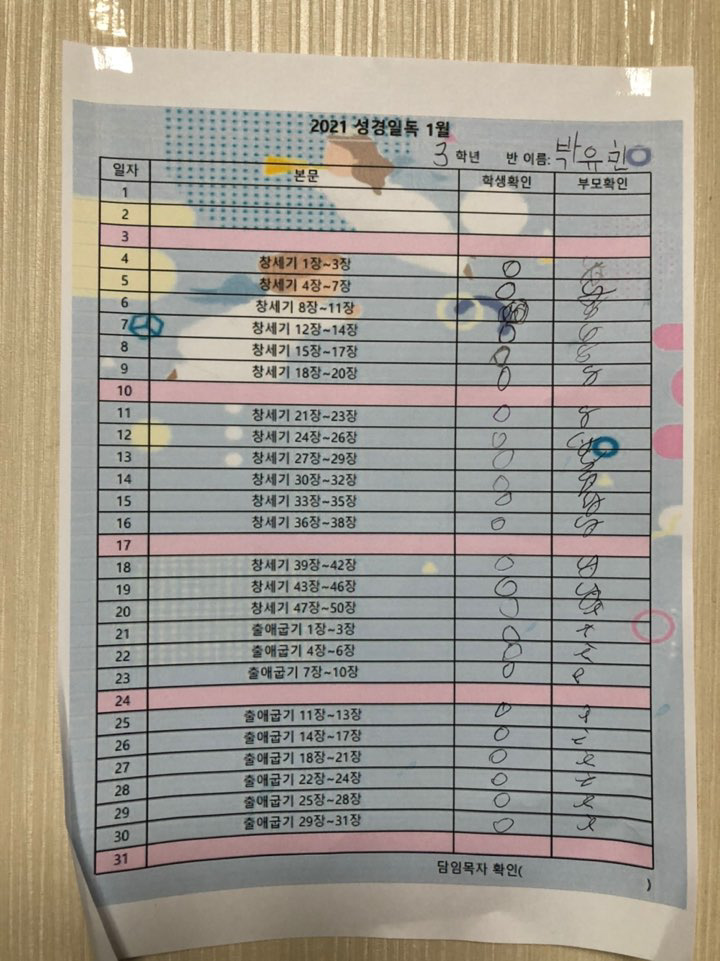 2021 성경일독 1월
3 학년 반 이름: 박유민
일자 본문 학생확인 부모확인
1
2
3
4 창세기 1장~3장 O
5 창세기 4장~7장 O
6 창세기 8장~11장
7 창세기 12장~14장 O
8 창세기 15장~17장 O
9 창세기 18장~20장 O
10
11 창세기 21장~23장 O
12 창세기 24장~26장 O
13 창세기 27장~29장 O
14 창세기 30장~32장 O
15 창세기 33장~35장 O
16 창세기 36장~38장 O
17
18 창세기 39장~42장 O
19 창세기 43장~46장 O
20 창세기 47장~50장 O
21 출애굽기 1장~3장 O
22 출애굽기 4장~6장 O
23 출애굽기 7장~10장 O
24
25 출애굽기 11장~13장 O
26 출애굽기 14장~17장 O
27 출애굽기 18장~21장 O
28 출애굽기 22장~24장 O
29 출애굽기 25장~28장 O
30 출애굽기 29장~31장 O
31
담임목자 확인( )